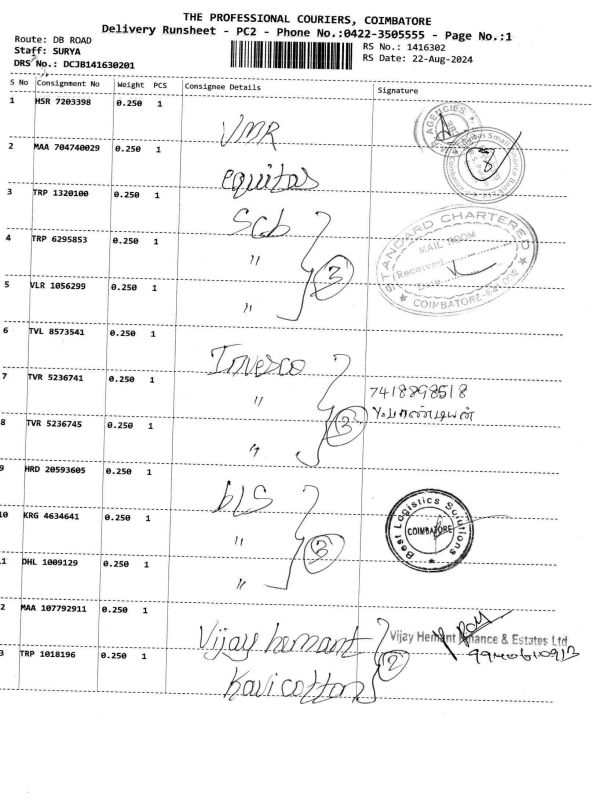 THE PROFESSIONAL COURIERS, COIMBATORE
Delivery Runsheet - PC2 - Phone No.:0422-3505555 - Page No.:1
Route: DB ROAD
Staff: SURYA
DRS No.: DCJB141630201
RS No.: 1416302
RS Date: 22-Aug-2024
S No Consignment No Weight PCS Consignee Details Signature
1 HSR 7203398 0.250 1 VMR
AGENCIES
2 MAA 704740029 0.250 1 equitas
3 TRP 1320100 0.250 1 Scb
4 TRP 6295853 0.250 1 〃
3
STANDARD CHARTERED
MAIL ROOM
Received
Date
COIMBATORE
5 VLR 1056299 0.250 1 〃
6 TVL 8573541 0.250 1 Invesco
7 TVR 5236741 0.250 1 〃
3
7418898518
8 TVR 5236745 0.250 1 〃
9 HRD 20593605 0.250 1 bLS
10 KRG 4634641 0.250 1 〃
3
Best Logistics Solutions
COIMBATORE
1 DHL 1009129 0.250 1 〃
2 MAA 107792911 0.250 1 Vijay hemant
2
Vijay Hemant Finance & Estates Ltd
3 TRP 1018196 0.250 1 Kavi cotton